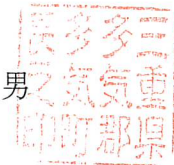 三重県
多気郡
多気町
長之印
男